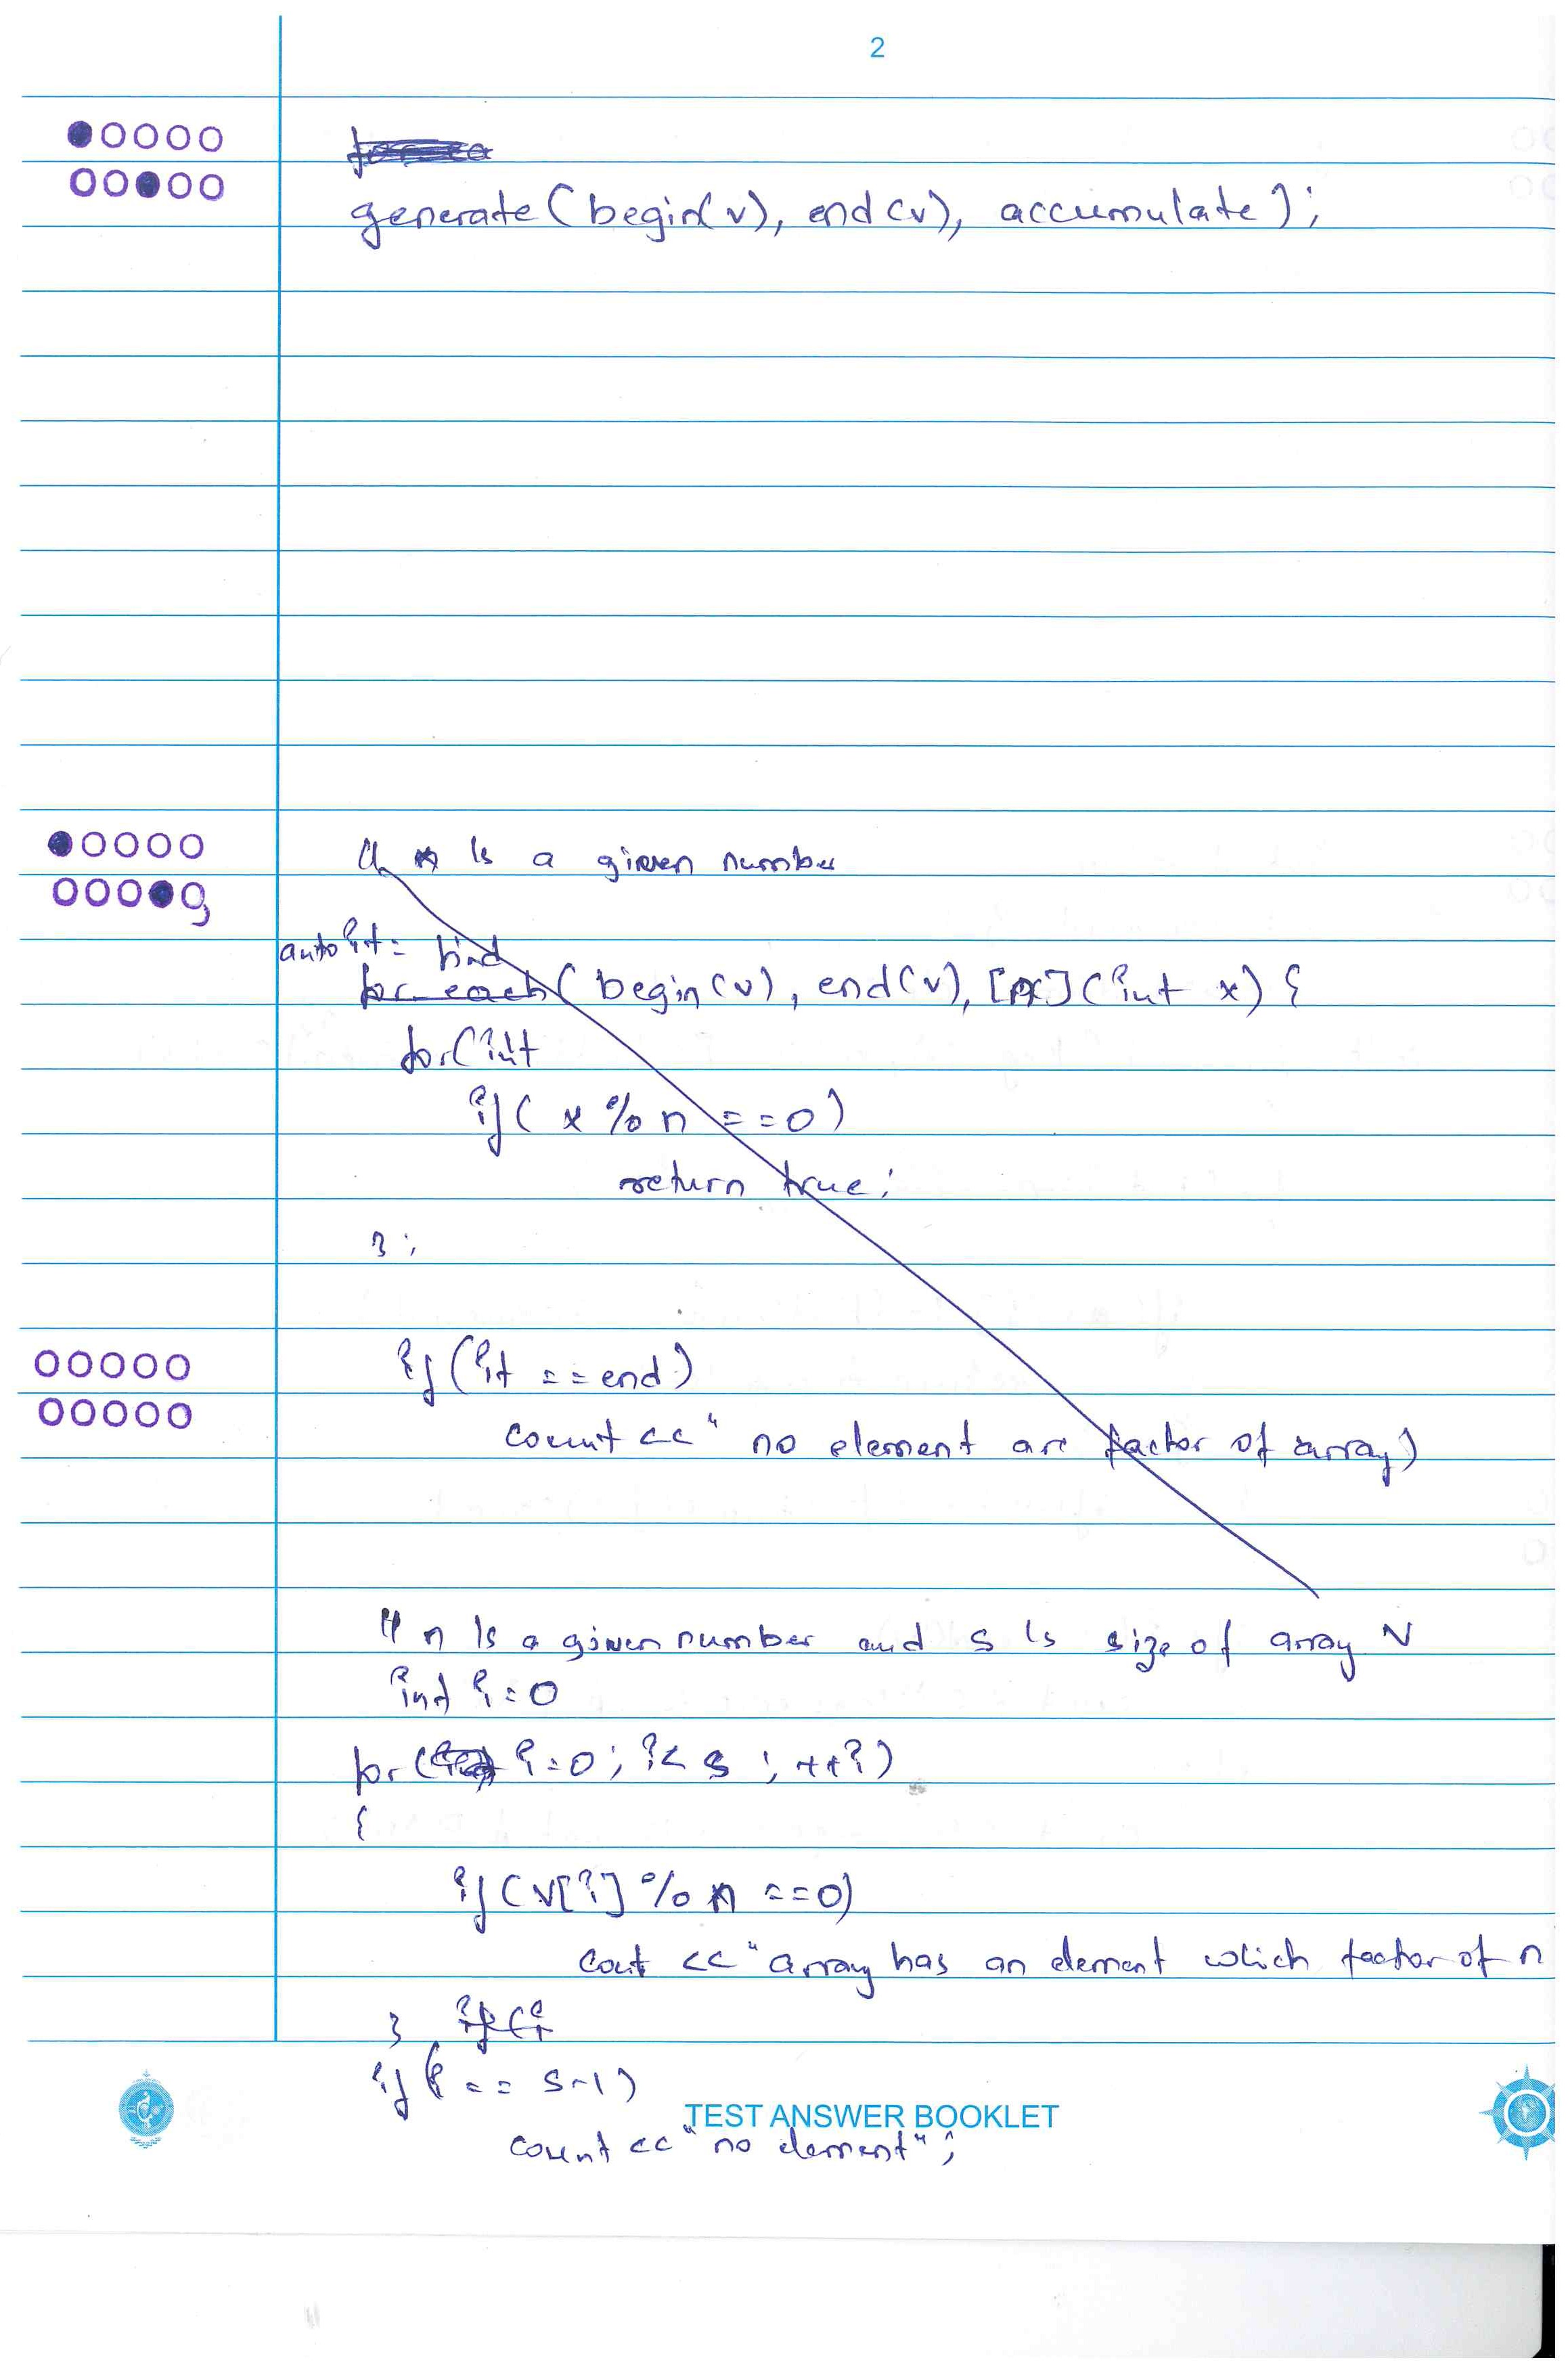 2
generate(begin(v), end(v), accumulate);
// n is a given number
auto it = find
for_each(begin(v), end(v), [n](int x) {
for(int
if( x % n == 0)
return true;
};
if(it == end)
count << " no element are factor of array)
// n is a given number and s is size of array v
int i = 0
for( i = 0; i < s ; ++i)
{
if(v[i] % n == 0)
cout << "array has an element which factor of n
} if(i
if(i == s-1)
TEST ANSWER BOOKLET
count << "no element";